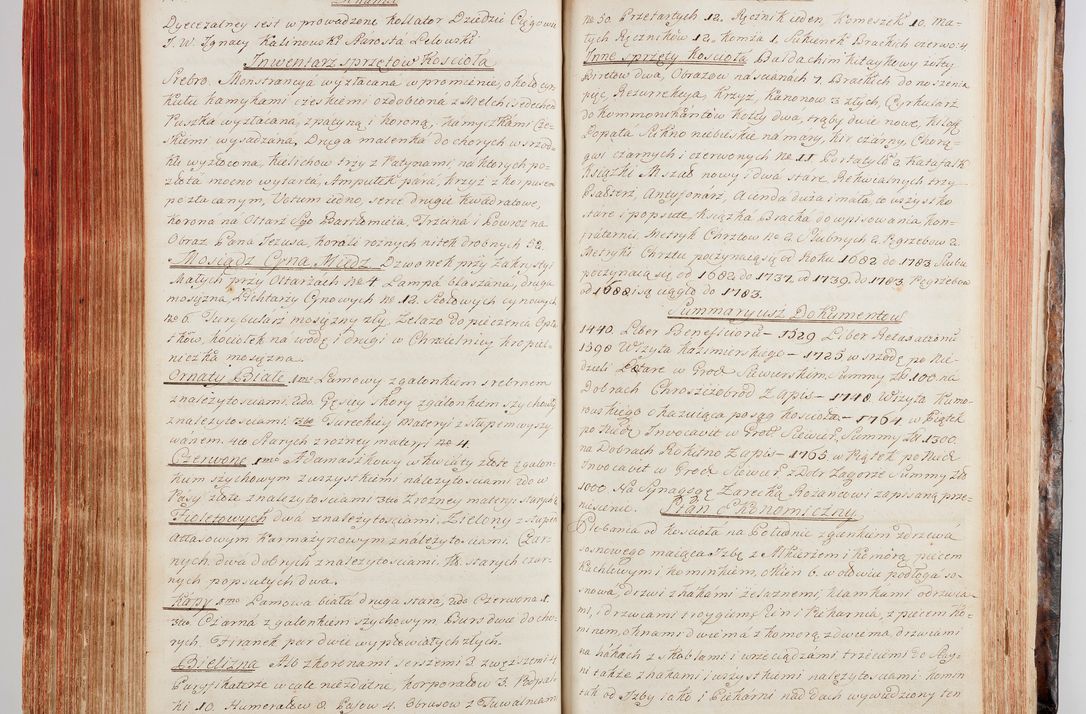 Dyecezalney iest w prowadzone Kollator Dziedzic Cięgowic
J. W. Ignacy Kalinowski Starosta Lelowski
Inwentarz sprzętow Kościoła
Srebro. Monstrancya wyzłacana w promienie, około cyr-
kułu kamykami czeskiemi ozdobiona z Melchisedechem
Puszka wyzłacana, z pateną i koroną, kamyczkami Cze-
skiemi wysadzana, Druga malenka do chorych w srzod-
ku wyzłocona, kielichow trzy z Patynami na ktorych po-
złota mocno wytarta, Ampułek para, krzyż z korpusem
pozłacanym, Votum iedno, serce drugie kwadratowe,
korona na Ołtarz S.go Bartłomieia, Trzcina i Powroz na
Obraz Pana Jezusa, korali roznych nitek drobnych 52.
Mosiądz Cyna Miedz. Dzwonek przy Zakrystyi
Małych przy Ołtarzach No 4 Lampa blaszana, druga
mosiyżna, Lichtarzy Cynowych No 12. Stołowych cynowych
No 6. Turybularz mosiyżny zły, Zelazo do pieczenia Opła-
tkow, kociołek na wodę i drugi w Chrzcielnicy kropiel-
niczka mosiyżna.
Ornaty Białe 1mo Lamowy z galonkiem srebrnem
z należytosciami, 2do Gęsiey Skory z galonkiem szychowym
z należytosciami 3tio Tureckiey Materyi z Słupem wyszy-
wanem. 4to Starych z rozney materyi No 4.
Czerwone 1mo Adamaszkowy w kwiaty złote z galon-
kiem szychowym z wszystkiemi należytosciami 2do w
Pasy złote z należytosciami 3tio z rozney materyi Starych
Fioletowych dwa z należytosciami, Zielony z Słupem
Atłasowym karmazynowym z należytosciami. Czar-
nych dwa dobrych z należytosciami, starych czar-
nych popsutych dwa.
Kapy 1mo Lamowa biała druga stara, 2do Czerwona 1.
3tio Czarna z galonkiem szychowym Burs dwie do cho-
rych. Firanek par dwie wypłowiałych złych.
Bielizna Alb z korenkami szerszemi 3. z węzszemi 4
Puryfikaterze w cale niezdatne, korporałow 3. Podpal-
ki 10. Humerałow 8. Pasow 4. Obrusow z Tuwalniami
No 50. Przetartych 12. Ręcznik ieden, komeszek 10. Ma-
łych Ręcznikow 12. komża 1. Sukienek Brackich czerwo: 4
Inne sprzęty Kościoła Baldachim kitaykowy żołty
Biretow dwa, Obrazow na scianach 7. Brackich do noszenia
pięć, Rezurrekcya, krzyż, kanonow 3 złych, Cyrkularz
do kommonikantow kotły dwa, trąby dwie nowe,
Łopata Sukno niebieskie na mary, kir czarny, Chorą-
gwi czarnych i czerwonych No 11 Portatyl 3 katafalk
Książki Mszał nowy i dwa stare, Rekwialnych trzy
Psałterz, Antyfonarz, Agenda duża i mała, to wszystko
stare i popsute, książka Bracka do wpisowania kon-
fraternii. Metryk Chrztow No 2. Slubnych 2. Pogrzebow 2.
Metryki Chrztu poczynaią się od Roku 1682 do 1783. Slubu
poczynaią się od 1682 do 1737. od 1739. do 1783. Pogrzebow
od 1688 są ciągło do 1783.
Summaryusz Dokumentow
1440. Liber Beneficioru – 1529 Liber Retaxationu
1598 Wizyta kazimierskiego – 1725 w srzodę po Nie-
dzieli Letare w Grod. Siewierskim Summy Zł 100. na
Dobrach Chroszczobrod Zapis – 1748 Wizyta Kuno-
wskiego okazuiąca posag kościoła – 1764 w Piątek
po Niedz Invocavit w Grod. Siewier. Summy Zł 1300.
na Dobrach Rokitno Zapis – 1765 w Piątek po Niedz
Invocavit w Grod. Siewier z Dobr Zagorze Summy Zło
1000 Na Synagogę Zarecką Rozancowi zapisaną prze-
niesienie. Plan Ekonomiczny.
Plebania od kościoła na Południe z gankiem z drzewa
sosnowego maiąca Izbę z Alkierzem i komorą piecem
kachlowym i kominkiem, okien 6. w ołowiu podłogą so-
snowa, drzwi z hakami żelaznemi, klamkami odrzwia-
mi, i drzwiami troygiemę Sin i Piekarnia, z piecem ko-
minem, oknami dwiema z komorą z dwiema drzwiami
na hakach z skoblami i wrzeciądzami trzeciemi do Sta-
ni także z hakami i wszystkiemi należytosciami. komin
tak od Izby iako i Piekarni nad dach wywiedziony ten